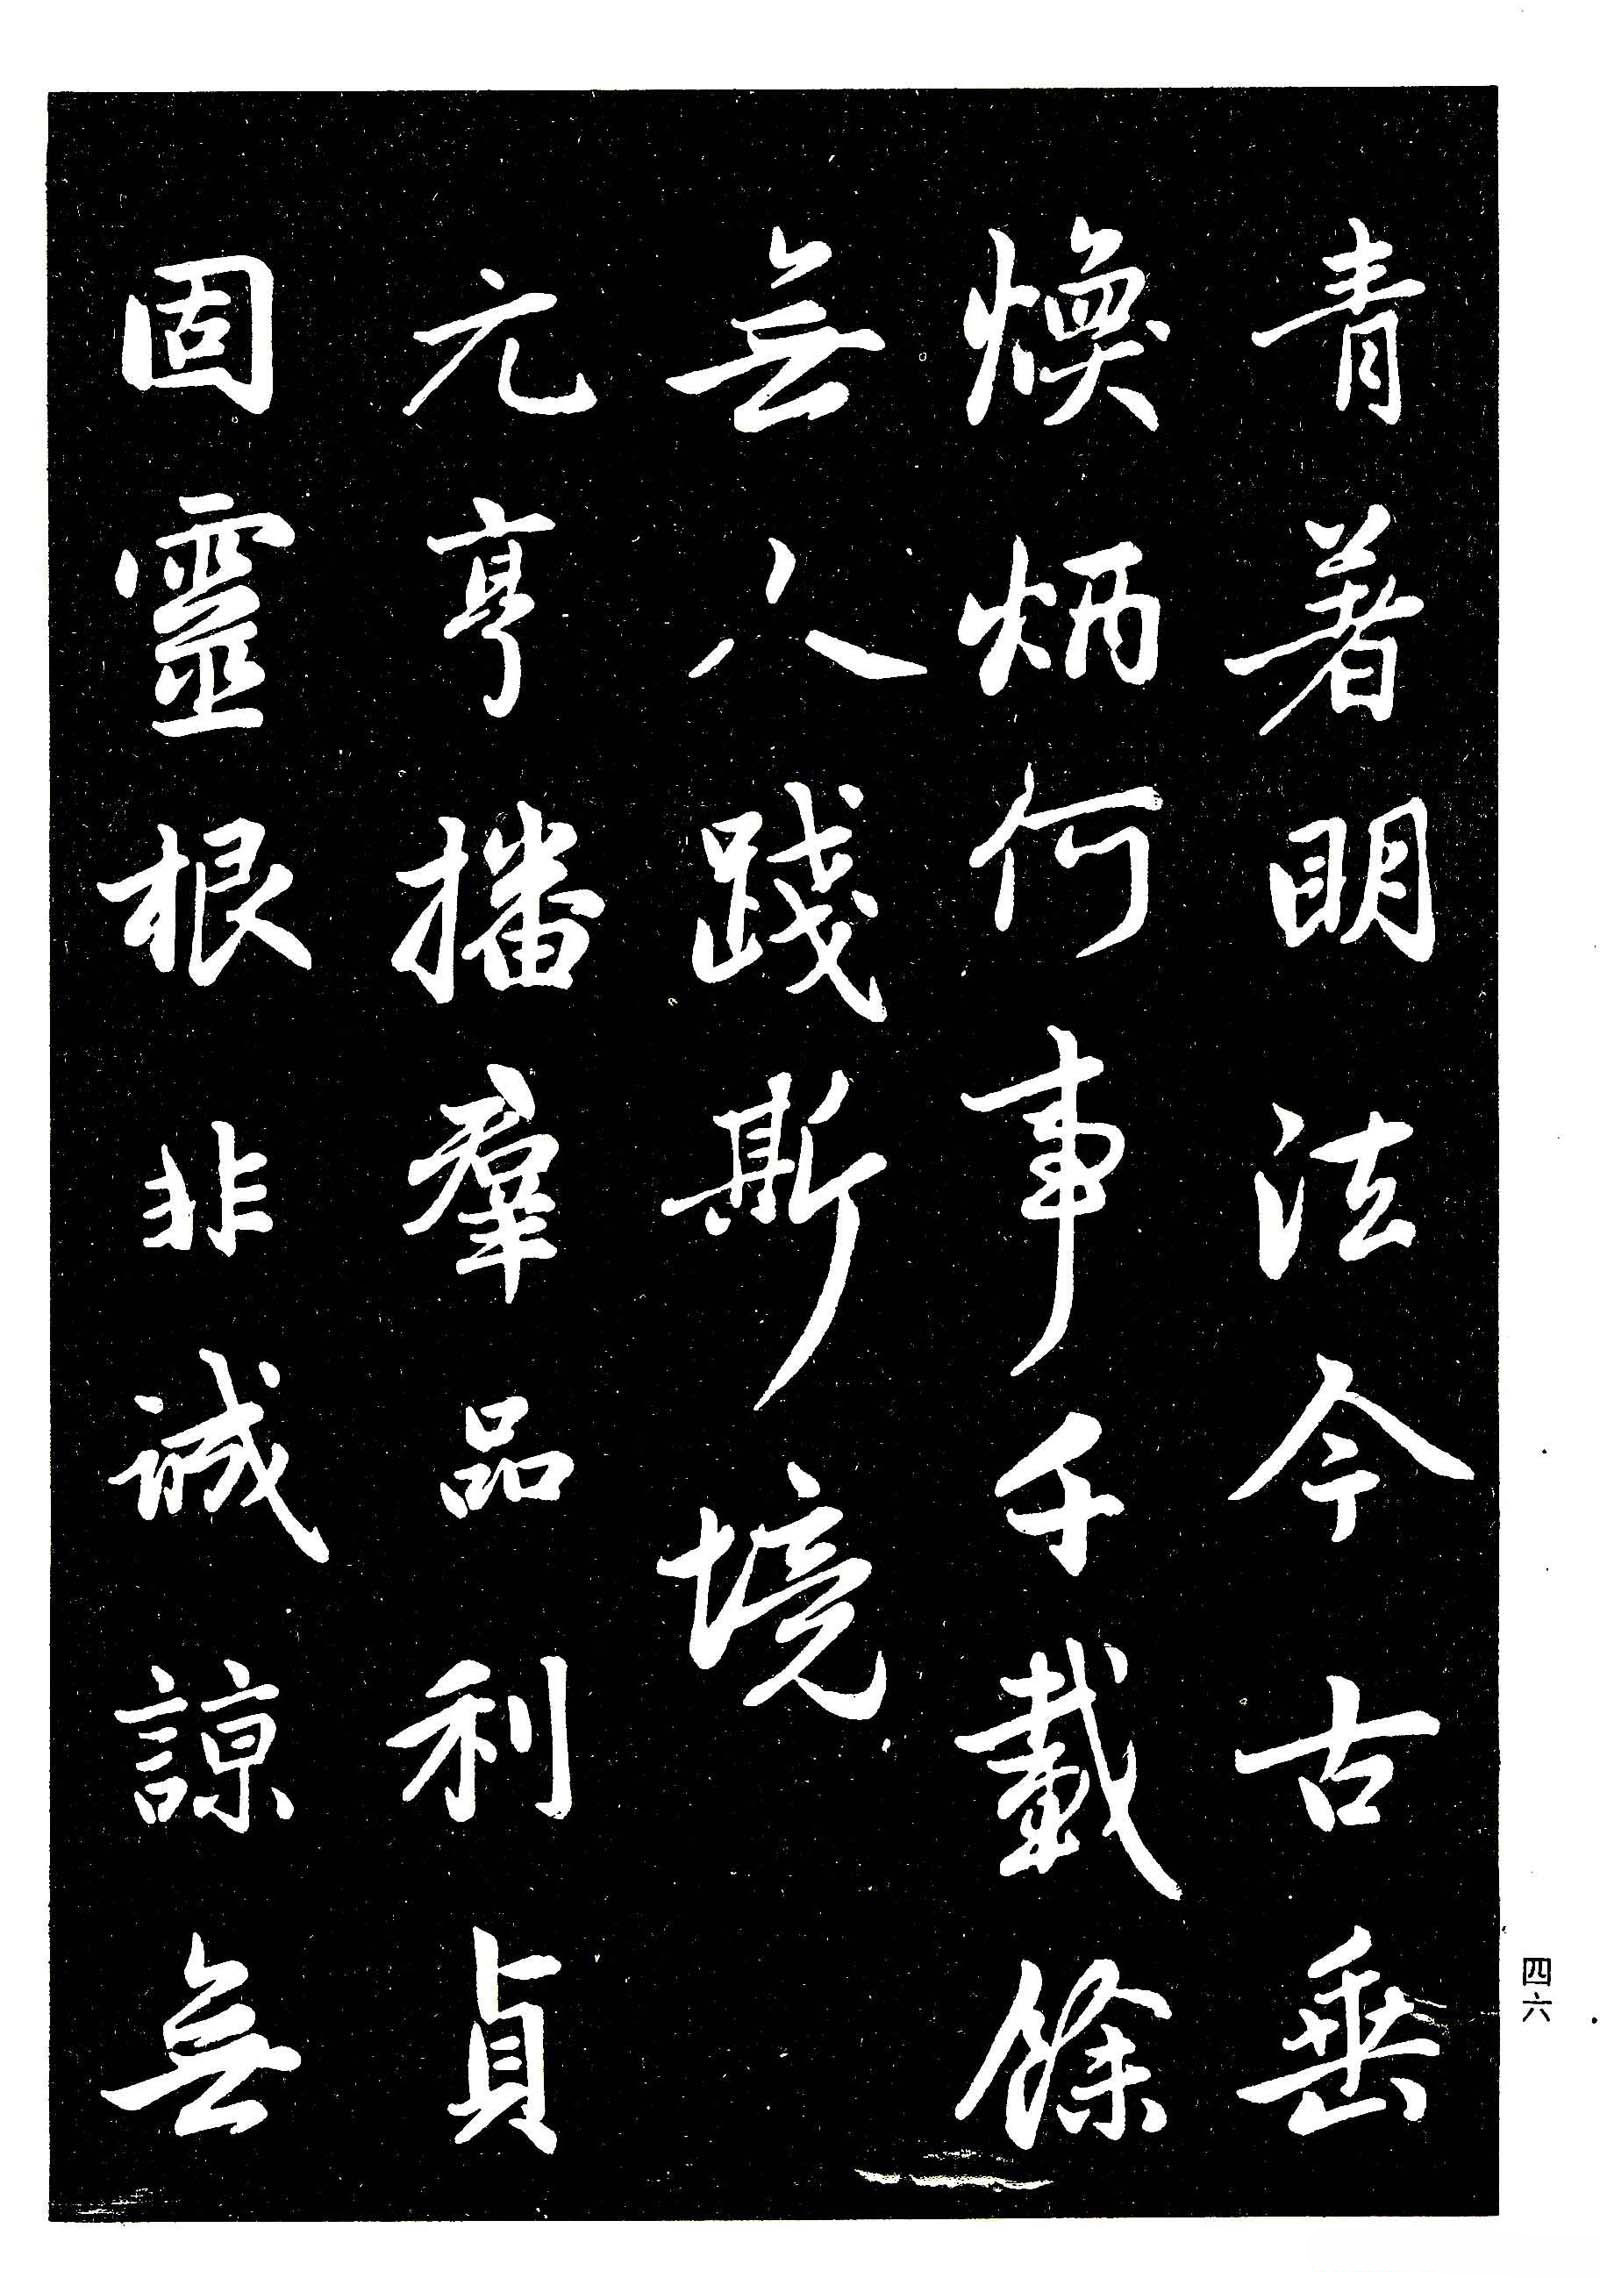 青著明法今古垂
煥炳何事千載餘
無人踐斯境
元亨播羣品利貞
固靈根非誠諒無
四六